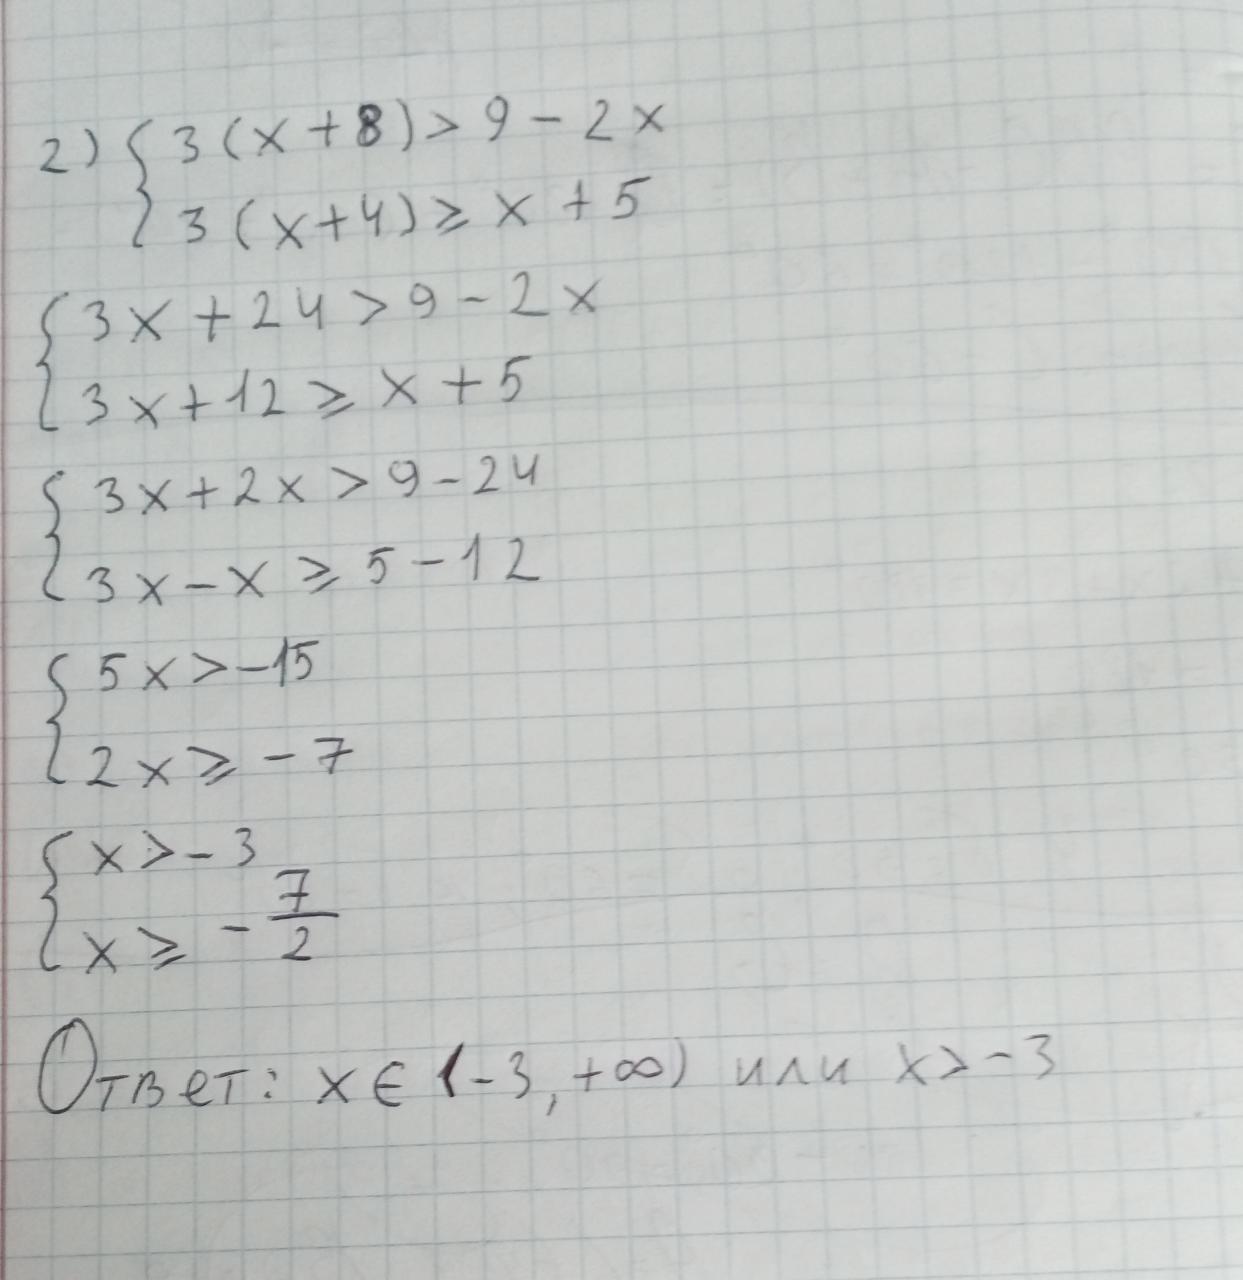 2) { 3(x+8) > 9 - 2x
3(x+4) ≥ x + 5
{ 3x + 24 > 9 - 2x
3x + 12 ≥ x + 5
{ 3x + 2x > 9 - 24
3x - x ≥ 5 - 12
{ 5x > -15
2x ≥ -7
{ x > -3
x ≥ - 7/2
Ответ: x ∈ (-3, +∞) или x > -3